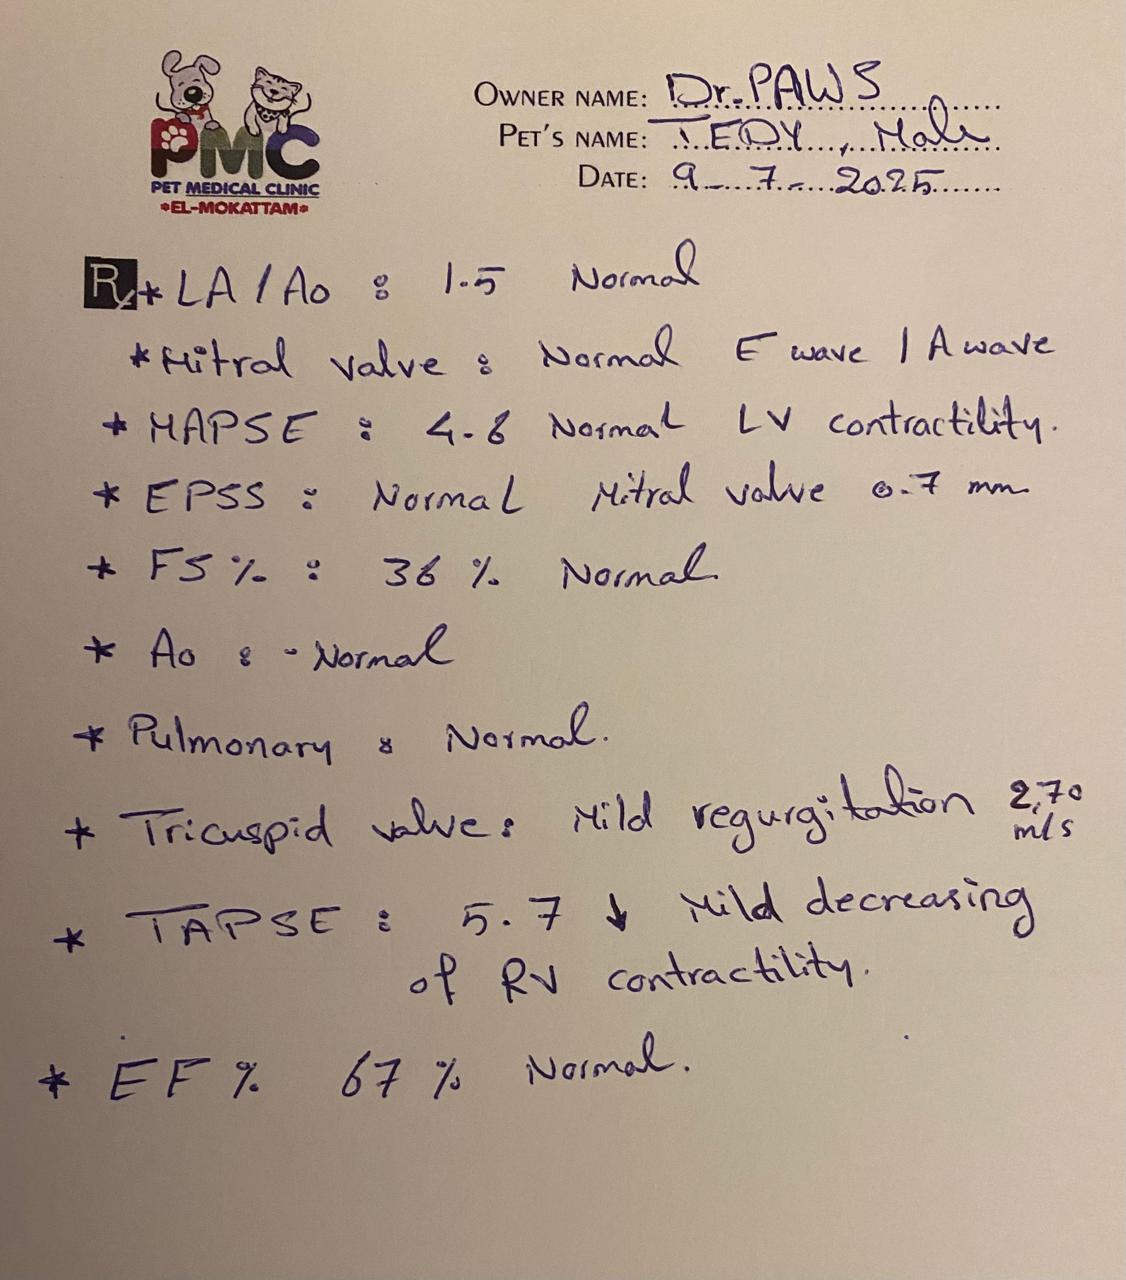 PMC
PET MEDICAL CLINIC
*EL-MOKATTAM*
OWNER NAME: Dr. PAWS
PET'S NAME: TEDY, Male
DATE: 9-7-2025
Rx * LA / Ao : 1.5 Normal
* Mitral valve : Normal E wave / A wave
* MAPSE : 4.6 Normal LV contractility.
* EPSS : Normal Mitral valve 0.7 mm
* FS % : 36 % Normal
* Ao : - Normal
* Pulmonary : Normal.
* Tricuspid valve : Mild regurgitation 2,70 m/s
* TAPSE : 5.7 ↓ Mild decreasing
of RV contractility.
* EF % 67 % Normal.